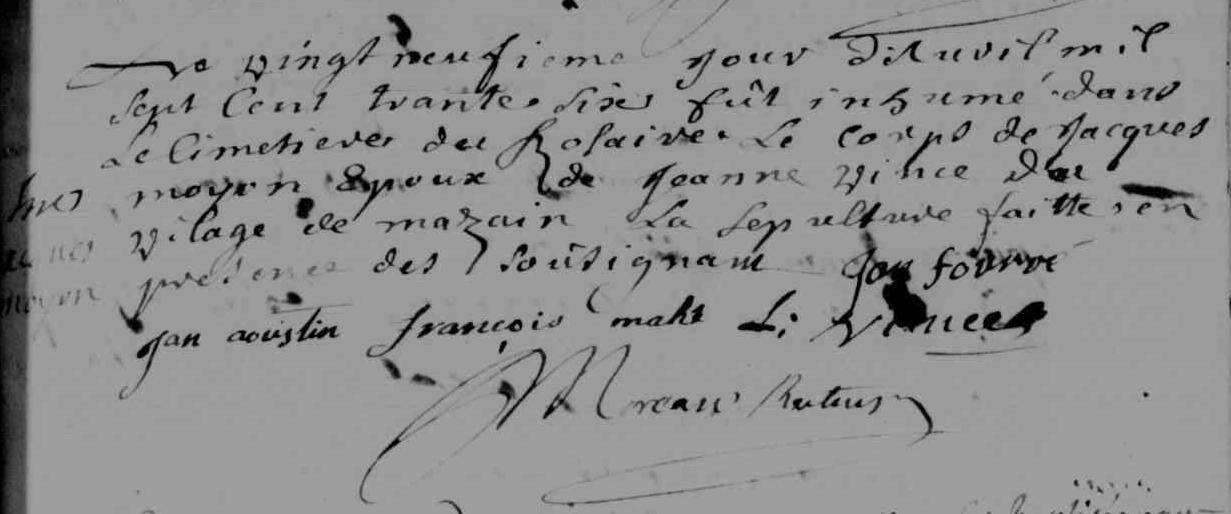 Le vingt neufieme jour d'avuil mil
sept Cent trante six fût inhumé dans
Le Cimetiere du Rosaire Le corps de Jacques
moyon Epoux de Jeanne vince du
vilage de mazain La sepulture faitte en
presence des soûsignant Jan fourré
Jan aoustin françois mahé L: vince
Moreau Recteur
moyon